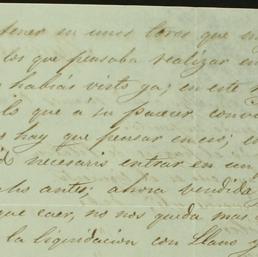 tener su unos Toros que su
los que pensaba realizar en
habias visto ya; en este
lo que á su parecer conv
hay que pensar en eso; e
necesario entrar en un
antes; ahora vendida
que caer, no nos queda mas
la liquidacion con Llano y